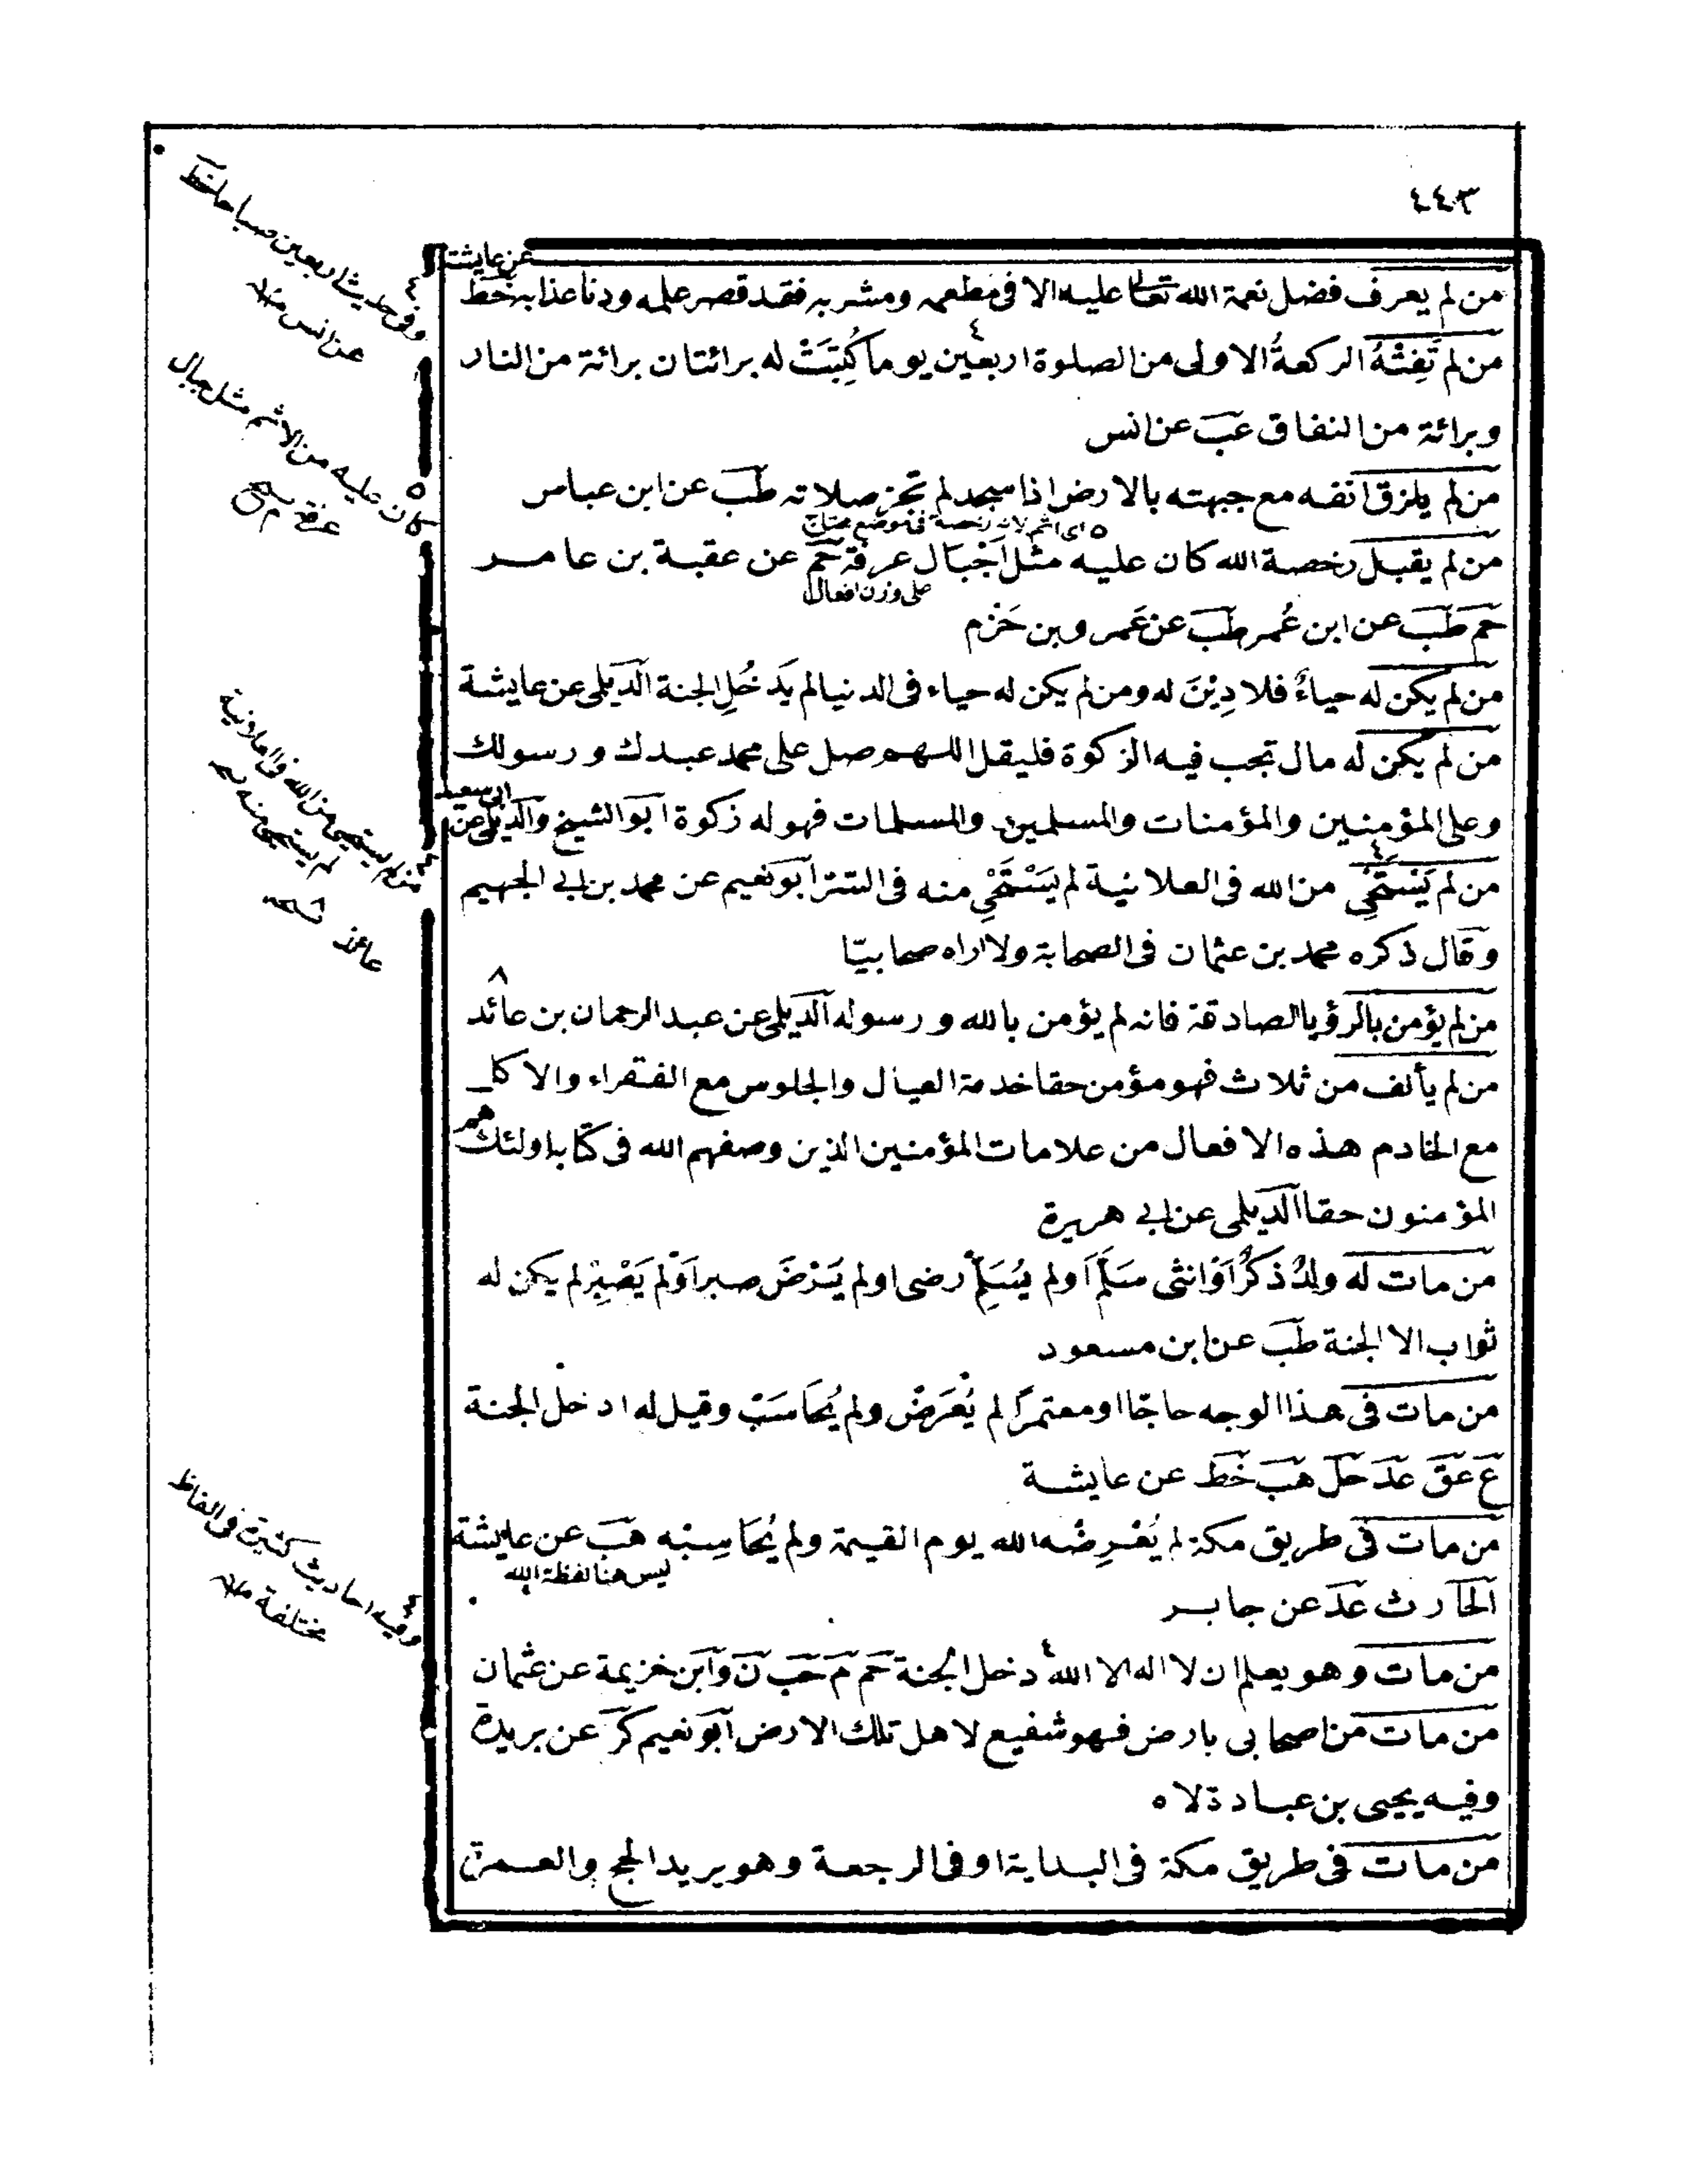 ٤٤٣
عن عايشة
من لم يعرف فضل نعمة الله تعالى عليه الا فى مطعمه ومشربه فقد قصر علمه ودنا عذابه خط
من لم تَفِتْهُ الركعةُ الاولى من الصلوة اربعين يوما كُتِبَتْ له برائتان برائة من النار
وبرائة من النفاق عب عن انس
من لم يلزق انفه مع جبهته بالارض اذا سجد لم تجز صلاته طب عن ابن عباس
٥ اى اثم لانه رخصة فى موضع يحتاج
من لم يقبل رخصة الله كان عليه مثل اَجْبَال عرفة حم عن عقبة بن عامر
على وزن افعال
حم طب عن ابن عُمر طب عن عَمرو بن حَزم
من لم يكن له حياءٌ فلا دِيْنَ له ومن لم يكن له حياء فى الدنيا لم يَدخُلِ الجنة الديلمى عن عايشة
من لم يكن له مال تجب فيه الزكوة فليقل اللهم صل على محمد عبدك ورسولك
ابى سعيد
وعلى المؤمنين والمؤمنات والمسلمين والمسلمات فهو له زكوة ابو الشيخ والديلمى عن
من لم يَسْتَحْىِ من الله فى العلانية لم يَسْتَحْىِ منه فى السر ابو نعيم عن محمد بن ابى الجهيم
وقال ذكره محمد بن عثمان فى الصحابة ولا اراه صحابيّا
من لم يؤمن بالرؤيا الصادقة فانه لم يؤمن بالله ورسوله الديلمى عن عبد الرحمان بن عائد
من لم يأنف من ثلاث فهو مؤمن حقا خدمة العيال والجلوس مع الفقراء والاكل
مع الخادم هذه الافعال من علامات المؤمنين الذين وصفهم الله فى كتابه اولئك هم
المؤمنون حقا الديلمى عن ابى هريرة
من مات له ولدٌ ذكرٌ اَوْ انثى سَلَّمَ اَولم يُسَلِّمْ رضى اولم يَرْضَ صبر اَوْلم يَصْبِرْ لم يكن له
ثواب الا الجنة طب عن ابن مسعود
من مات فى هذا الوجه حاجّا او معتمرًا لم يُعْرَضْ ولم يُحَاسَبْ وقيل له ادخل الجنة
ع عق عد حل هب خط عن عايشة
من مات فى طريق مكة لم يُعْرِضْه الله يوم القيمة ولم يُحَاسِبْه هب عن عايشة
ليس هنا لفظة الله
الحارث عد عن جابر
من مات وهو يعلم ان لا اله الا الله دخل الجنة حم م حب ن وابن خزيمة عن عثمان
من مات من اصحابى بارض فهو شفيع لاهل تلك الارض ابو نعيم كر عن بريدة
وفيه يحيى بن عباد ذلاه
من مات فى طريق مكة فى البداية او فى الرجعة وهو يريد الحج والعمرة
٤ وفى حديث اربعين صباحا
عن انس منه
٥ كان عليه من الاثم مثل جبال
من لم يستحيى من الله فى العلانية
لم يستحيى منه
عائذ
٤ وفيه احاديث كثيرة فى الفاظ
مختلفة منه